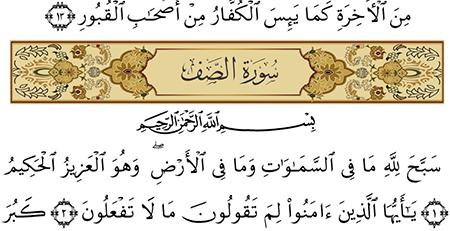 مِنَ ٱلْأَخِرَةِ كَمَا يَئِسَ ٱلْكُفَّارُ مِنْ أَصْحَٰبِ ٱلْقُبُورِ ﴿١٣﴾
سُورَةُ الصَّفِّ
بِسْمِ ٱللَّهِ ٱلرَّحْمَٰنِ ٱلرَّحِيمِ
سَبَّحَ لِلَّهِ مَا فِى ٱلسَّمَٰوَٰتِ وَمَا فِى ٱلْأَرْضِ ۖ وَهُوَ ٱلْعَزِيزُ ٱلْحَكِيمُ
﴿١﴾ يَٰٓأَيُّهَا ٱلَّذِينَ ءَامَنُوا۟ لِمَ تَقُولُونَ مَا لَا تَفْعَلُونَ ﴿٢﴾ كَبُرَ